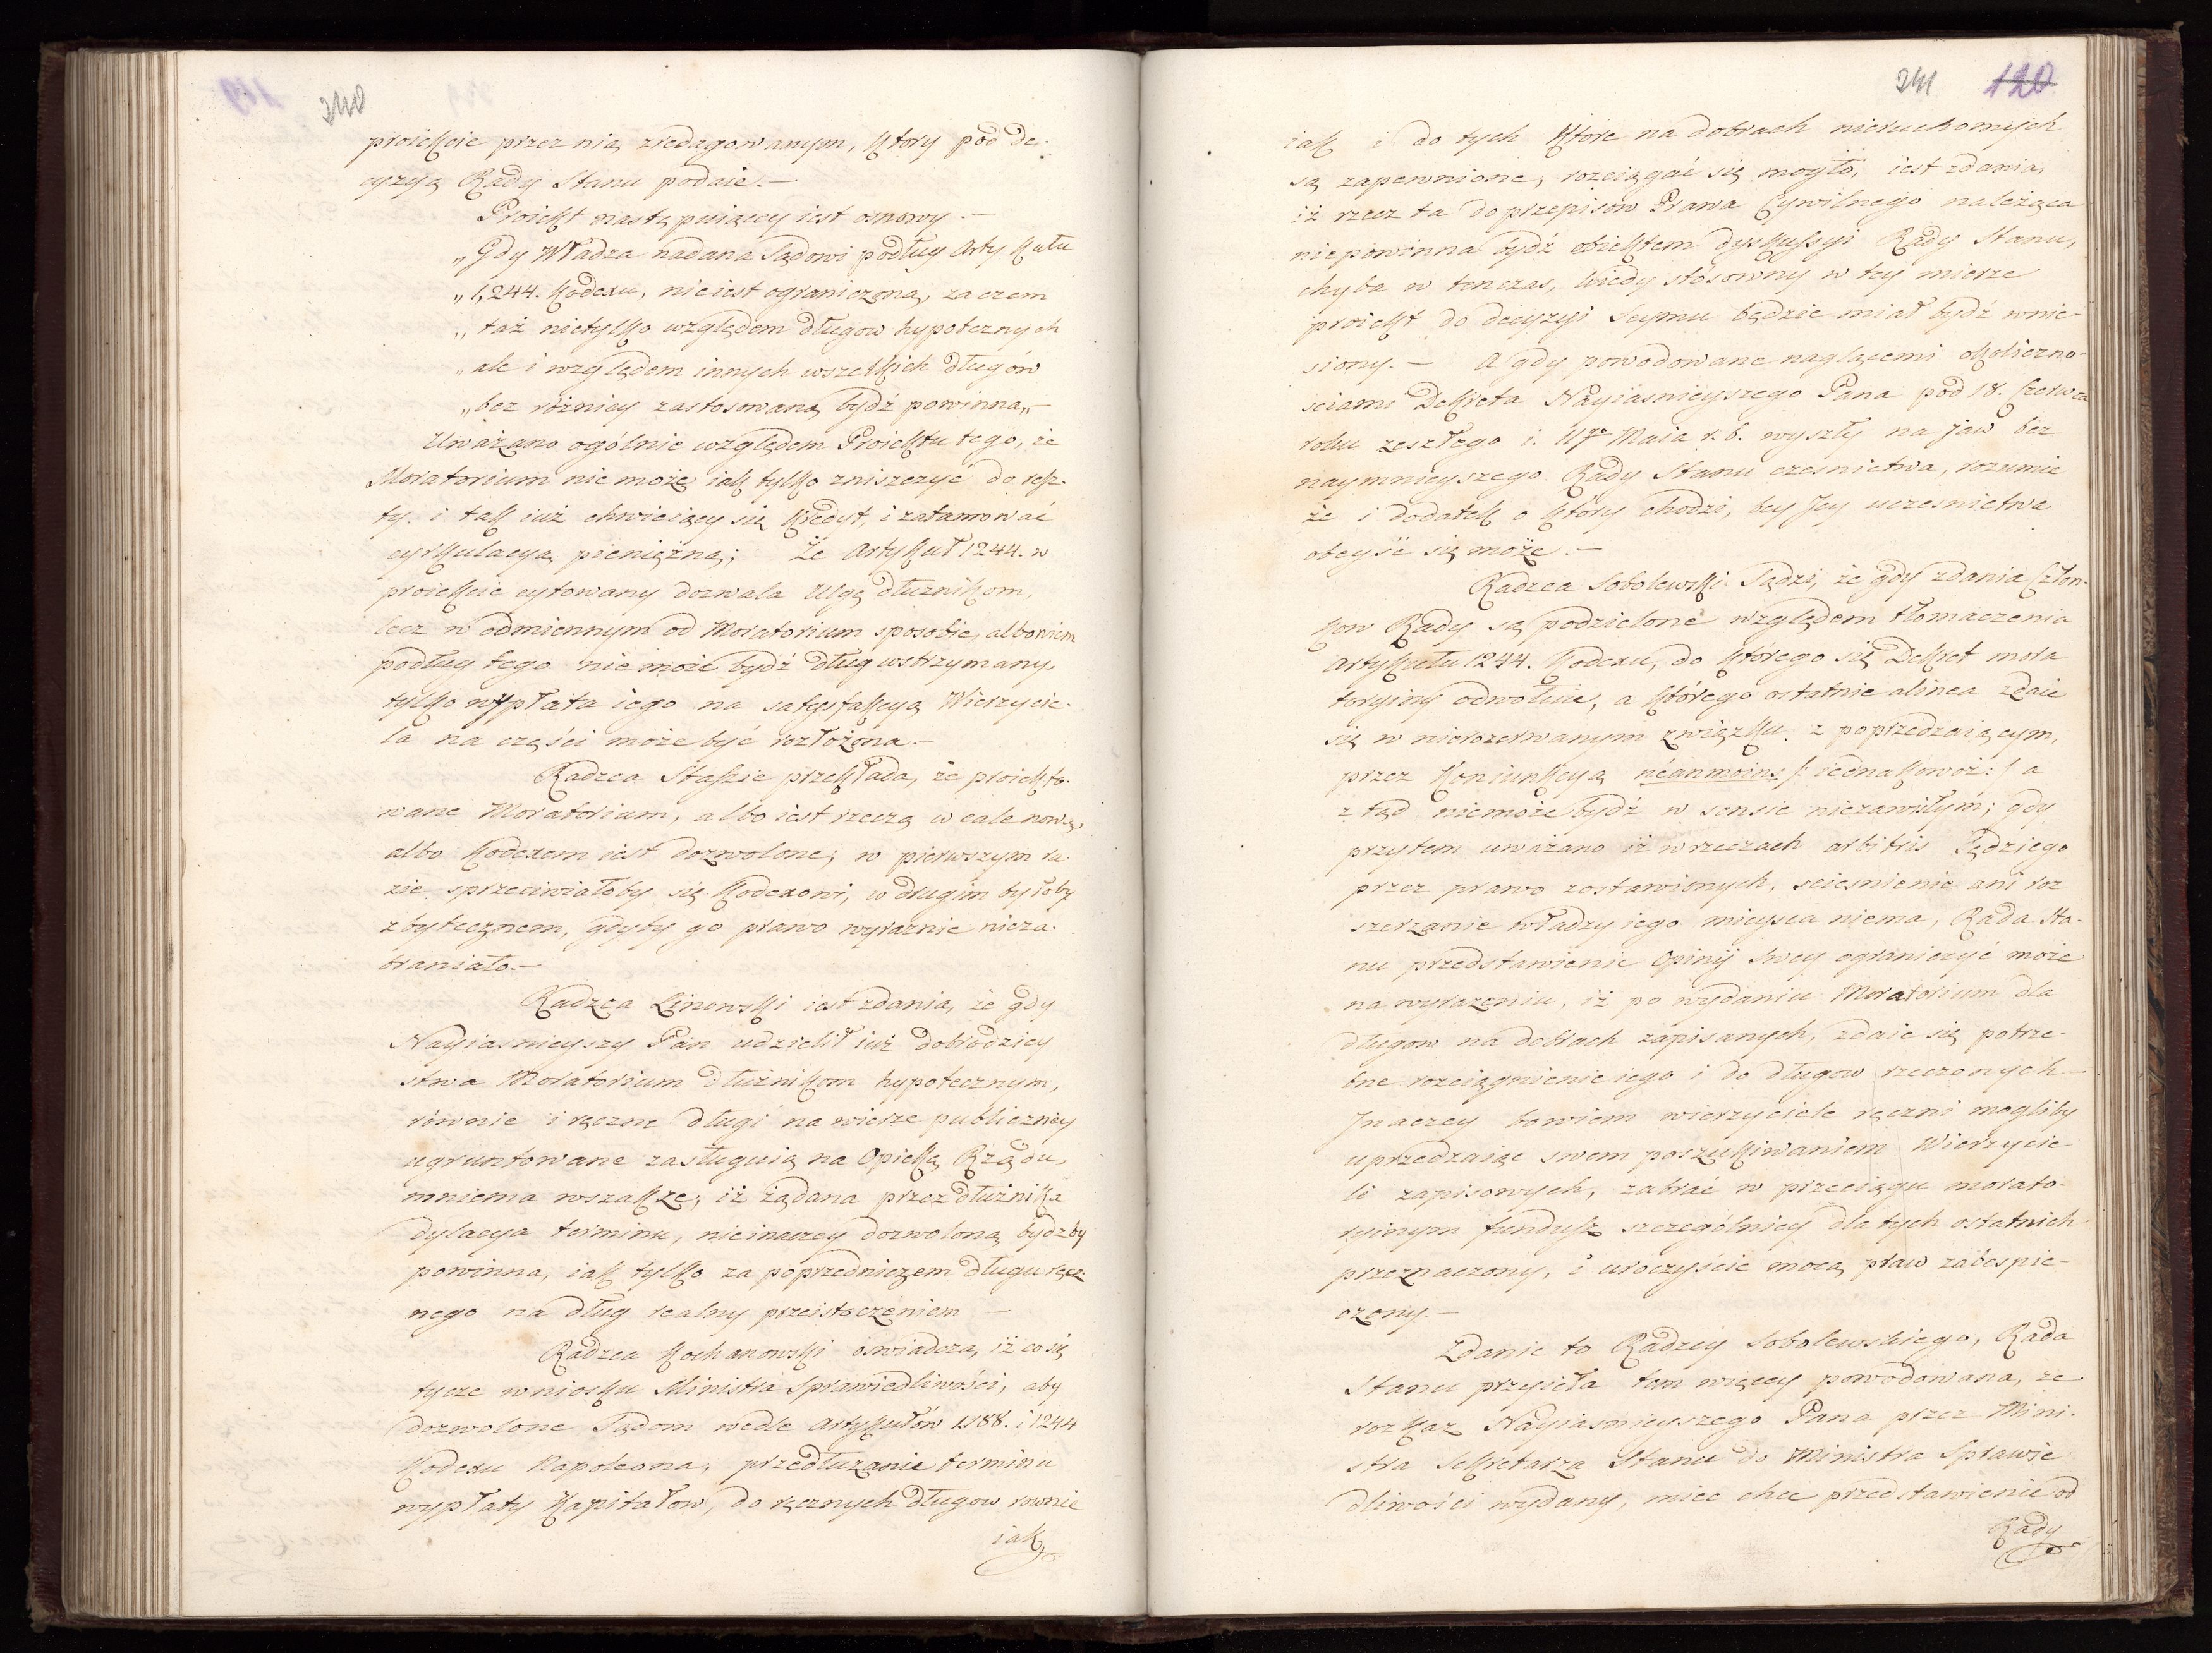 240
proiekcie przez nią zredagowanym, który pod de-
cyzyą Rady Stanu podaie.—
Proiekt następuiący iest osnowy.—
„Gdy Władza nadana Sądowi podług Artykułu
„1,244. Kodexu, nie iest ograniczoną, zaczem
„taż nietylko względem długow hypotecznych
„ale i względem innych wszelkich długów
„bez różnicy zastosowaną bydź powinna„—
Uważano ogólnie względem Proiektu tego, że
Moratorium nie może iak tylko zniszczyć do resz-
ty i tak iuż chwieiący się kredyt, i zatamować
cyrkulacyą pieniężną; Że Artykuł 1244. w
proiekcie cytowany dozwala ulgę dłużnikom,
lecz w odmiennym od Moratorium sposobie, albowiem
podług tego nie może bydź dług wstrzymany,
tylko wypłata iego na satysfakcyą Wierzycie-
la na części może być rozłożona.—
Radzca Staszic przekłada, że proiekto-
wane Moratorium, albo iest rzeczą wcale nową,
albo Kodexem iest dozwolone; w pierwszym ra-
zie sprzeciwiałoby się Kodexowi, w drugim byłoby
zbytecznem, gdyby go prawo wyraznie nieza-
braniało.—
Radzca Linowski iest zdania, że gdy
Nayiasnieyszy Pan udzielił iuż dobrodziey
stwa Moratorium dłużnikom hypotecznym,
równie i ręczne długi na wierze publiczney
ugruntowane zasługuią na Opiekę Rządu,
mniema wszakże, iż żądana przez dłużnika
dylacya terminu, nieinaczey dozwoloną bydzby
powinna, iak tylko za poprzedniczem długu ręcz
nego na dług realny przeistoczeniem —
Radzca Kochanowski oswiadcza, iż co się
tycze wniosku Ministra Sprawiedliwości, aby
dozwolone Sądom wedle Artykułów 1188. i 1244
Kodexu Napoleona, przedłużanie terminu
wypłaty Kapitałow, do ręcznych długow rownie
iak
241 120
iak i do tych które na dobrach nieruchomych
są zapewnione, rozciągać się mogło, iest zdania,
iż rzecz ta do przepisów Prawa Cywilnego należąca
niepowinna bydź obiektem dyskussyi Rady Stanu,
chyba w tenczas, kiedy stósowny w tey mierze
proiekt do decyzyi Seymu będzie miał bydź wnie-
siony.— A gdy powodowane naglącemi okoliczno-
sciami Dekreta Nayiasnieyszego Pana pod 18. Czerwca
roku zeszłego i. Maia r. b. wyszły na jaw bez
naymnieyszego Rady Stanu czesnictwa, rozumie
że i dodatek o który chodzi, bez Jey uczesnictwa
obeyść się może.—
Radzca Sobolewski Sądzi, że gdy zdania Człon-
kow Rady są podzielone względem tłomaczenia
Artykułu 1244. Kodexu, do którego się Dekret mora
toryiny odwołuie, a którego ostatnie alinea zdaie
się w nierozerwanym związku z poprzedzaiącym,
przez Koniunkcyą néanmoins /: iednakowoż :/ a
z tąd niemoże bydź w sensie niezawisłym; gdy
przytem uważano iż w rzeczach arbitris Sędziego
przez prawo zostawionych, sciesnienie ani roz
szerzanie władzy iego mieysca niema, Rada Sta-
nu przedstawienie Opinij swey ograniczyć może
na wyrazeniu, iż po wydaniu Moratorium dla
długow na dobrach zapisanych, zdaie się potrze-
bne rozciągnienie iego i do długow rzeczonych—
Jnaczey bowiem wierzyciele ręczni mogliby
uprzedzaiąc swem poszukiwaniem Wierzycie-
li zapisowych, zabrać w przeciągu morato-
ryinym fundusz szczególniey dla tych ostatnich
przeznaczony, i uroczyście mocą praw zabespie-
czony.—
Zdanie to Radzcy Sobolewskiego, Rada
Stanu przyieła tem więcey powodowana, że
rozkaz Nayiasnieyszego Pana przez Mini-
stra Sekretarza Stanu do Ministra Sprawie
dliwości wydany, miec chce przedstawienie od
Rady